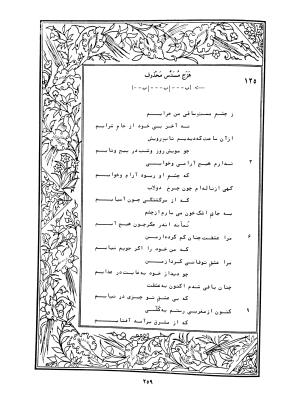 هزج مسدس محذوف
۱۲۵
ز چشم مست ساقی من خرابم
نه آخر بی خود از جام شرابم
از آن ساعت که دیدیم تاب رویش
چو مویش روز وشب در پیچ وتابم
۳
ندارم هیچ آرامی وخوابی
که چشم او ربود آرام وخوابم
گهی از ناله‌ام چون چرخ دولاب
که از سرگشتگی چون آسیابم
به جای اشک خون می بارم از چشم
نماند اندر جگر چون هیچ آبم
۶
مرا عشقت چنان گم کرد از من
که من خود را اگر جویم نیابم
مرا عشق تو فانی کرد از من
چو دیدار خود به غایت در عذابم
چنان باقی شدم اکنون به عشقت
که بی عشق تو چیزی در نیابم
۹
کنون از مغربی رستم به کلی
که از مشرق برآمد آفتابم
۲۵۹